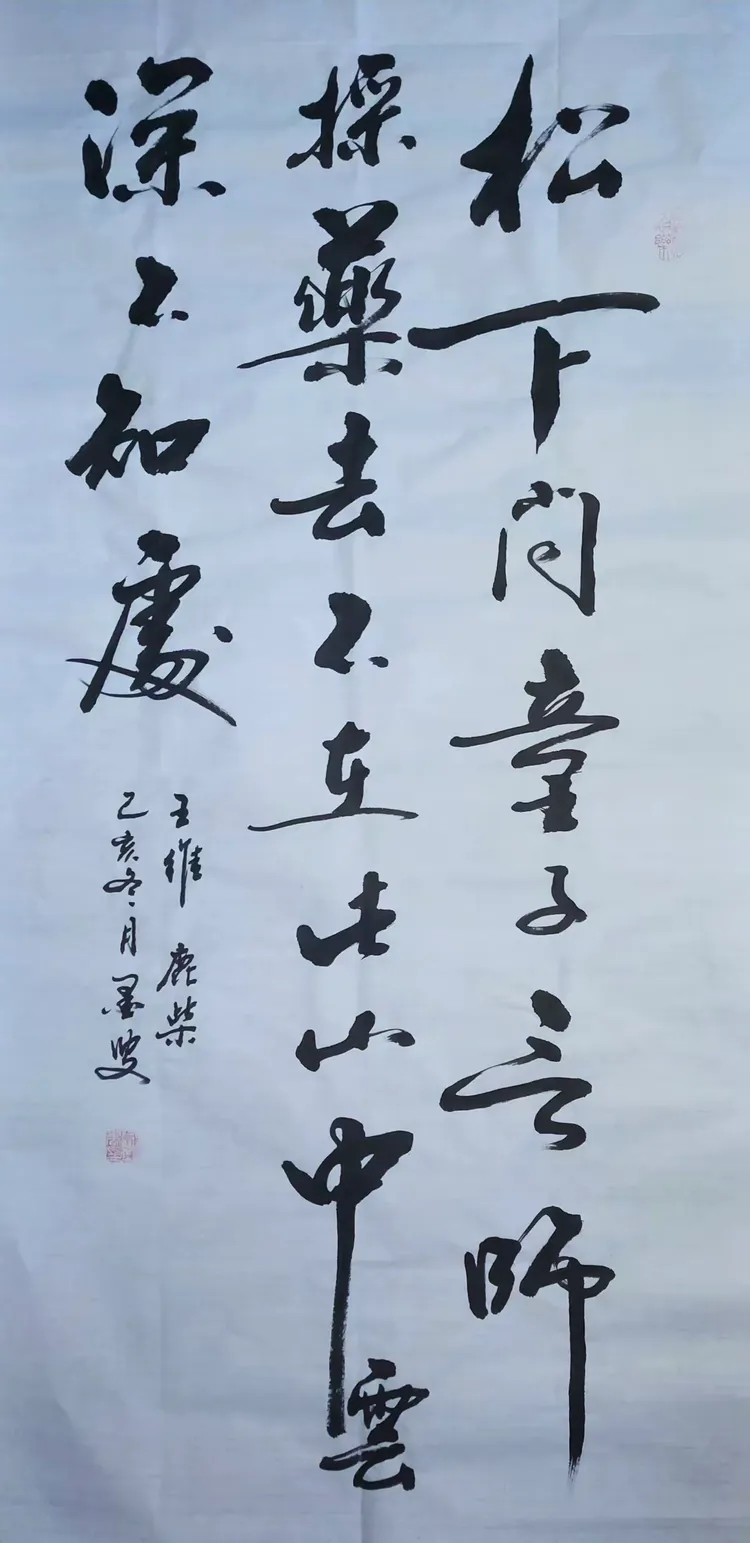 松下问童子言师
採藥去不在此山中雲
深不知處
王维 鹿柴
己亥冬月墨叟